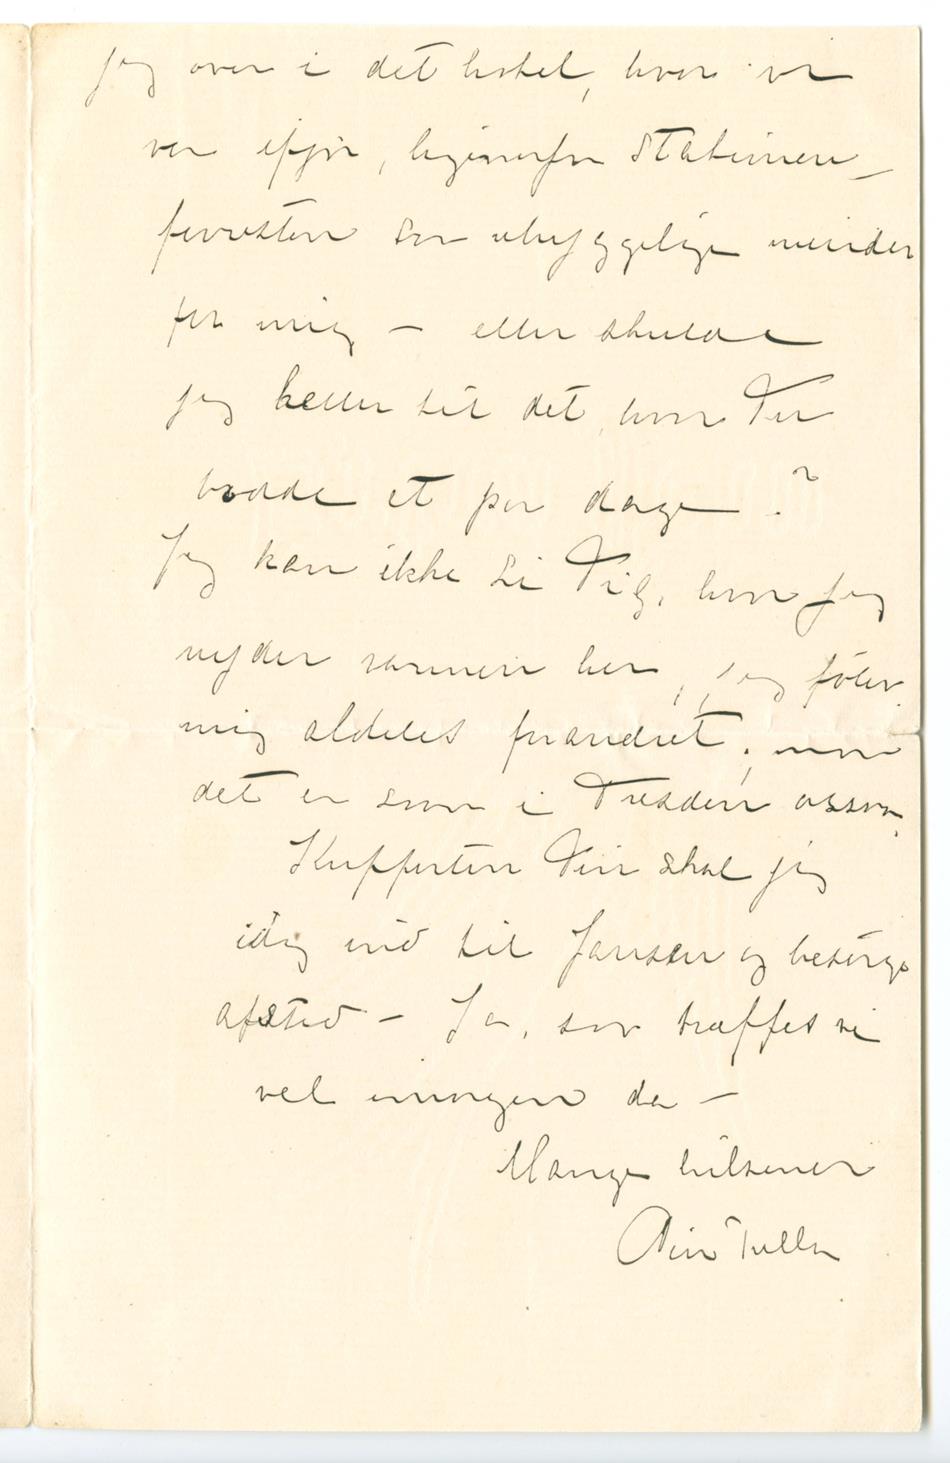 jeg over i det hotel, hvor vi
var ifjor, ligeoverfor Stationen –
forresten saa uhyggelige minder
for mig – eller skulde
jeg heller til det, hvor Du
bodde et par dage?
Jeg kan ikke si Dig, hvor jeg
nyder varmen her, jeg føler
mig aldeles forandret;
det er saa i Dresden ossaa.
Kufferten Din skal jeg
idag ind til Jansen og besørge
afsted – Ja, saa træffes vi
vel imorgen da –
Mange hilsener
Din Tulla